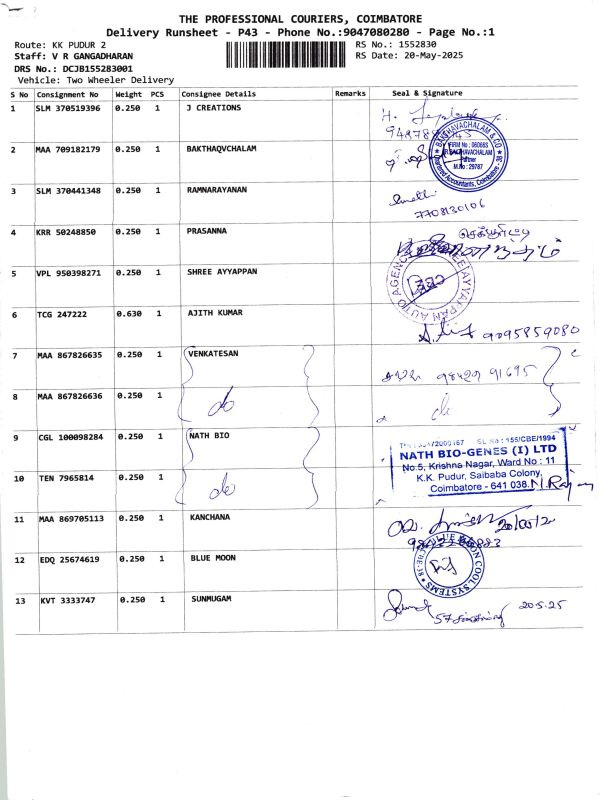 THE PROFESSIONAL COURIERS, COIMBATORE
Delivery Runsheet - P43 - Phone No.:9047080280 - Page No.:1
Route: KK PUDUR 2
RS No.: 1552830
Staff: V R GANGADHARAN
RS Date: 20-May-2025
DRS No.: DCJB155283001
Vehicle: Two Wheeler Delivery
S No Consignment No Weight PCS Consignee Details Remarks Seal & Signature
1 SLM 370519396 0.250 1 J CREATIONS
2 MAA 709182179 0.250 1 BAKTHAQVCHALAM
BAKTHAVACHALAM & CO
FIRM No : 06066S
R.BAKTHAVACHALAM
Partner
M.No : 29787
Chartered Accountants, Coimbatore - 38
3 SLM 370441348 0.250 1 RAMNARAYANAN
7708130106
4 KRR 50248850 0.250 1 PRASANNA
செக்யூரிட்டி
5 VPL 950398271 0.250 1 SHREE AYYAPPAN
SHREE AYYAPPAN AUTO AGENCY
CBE
6 TCG 247222 0.630 1 AJITH KUMAR
9095859080
7 MAA 867826635 0.250 1 VENKATESAN
98429 91695
8 MAA 867826636 0.250 1 do
do
9 CGL 100098284 0.250 1 NATH BIO
SL No : 155/CBE/1994
NATH BIO-GENES (I) LTD
No.5, Krishna Nagar, Ward No : 11
K.K. Pudur, Saibaba Colony,
Coimbatore - 641 038.
10 TEN 7965814 0.250 1 do
N.Rajan
11 MAA 869705113 0.250 1 KANCHANA
12 EDQ 25674619 0.250 1 BLUE MOON
BLUE MOON COOL SYSTEMS
CBE-38
13 KVT 3333747 0.250 1 SUNMUGAM
20.5.25